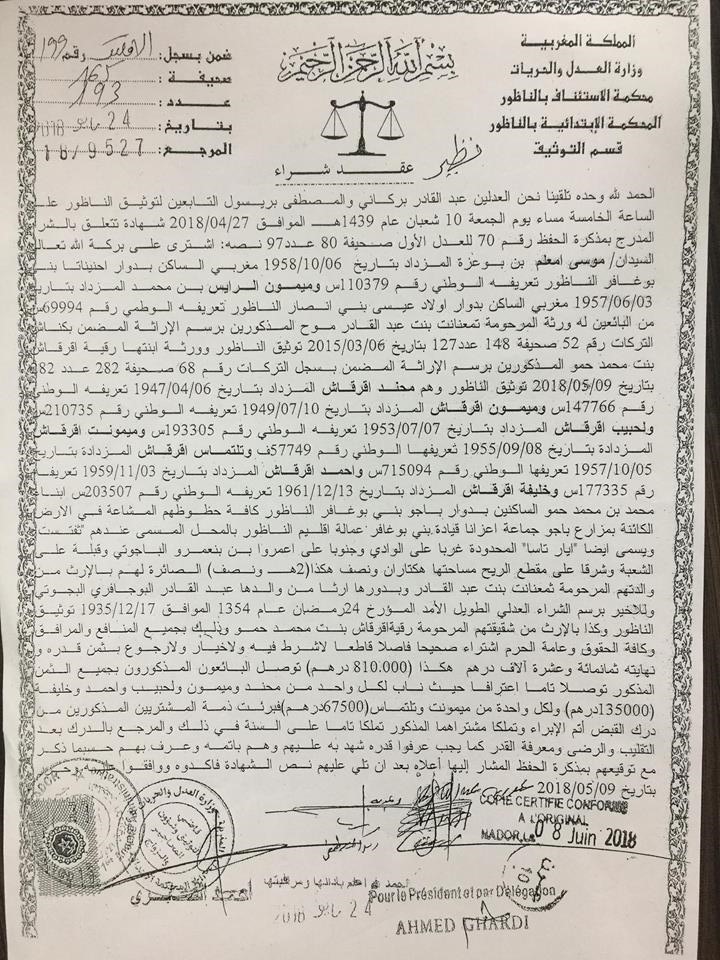 المملكة المغربية
وزارة العدل والحريات
محكمة الاستئناف بالناظور
المحكمة الإبتدائية بالناظور
قسم التوثيق
بسم الله الرحمن الرحيم
ضمن بسجل: الاملاك رقم 199
صحيفة : 165
عدد : 193
بتاريخ : 24 ماي 2018
المرجع : 18/9527
نظير
عقد شراء
الحمد لله وحده تلقينا نحن العدلين عبد القادر بركاني والمصطفى بريسول التابعين لتوثيق الناظور على
الساعة الخامسة مساء يوم الجمعة 10 شعبان عام 1439هـ الموافق 2018/04/27 شهادة تتعلق بالشر
المدرج بمذكرة الحفظ رقم 70 للعدل الأول صحيفة 80 عدد97 نصه: اشترى على بركة الله تعال
السيدان/ موسى امعلم بن بوعزة المزداد بتاريخ 1958/10/06 مغربي الساكن بدوار احنيناتا بني
بوغافر الناظور تعريفه الوطني رقم 110379س وميمون الرايس بن محمد المزداد بتاريخ
1957/06/03 مغربي الساكن بدوار اولاد عيسى بني انصار الناظور تعريفه الوطمي رقم 69994س
من البائعين له ورثة المرحومة تمعنانت بنت عبد القادر موح المذكورين برسم الإراثة المضمن بكناش
التركات رقم 52 صحيفة 148 عدد127 بتاريخ 2015/03/06 توثيق الناظور وورثة ابنتها رقية اقرقاش
بنت محمد حمو المذكورين برسم الإراثة المضمن بسجل التركات رقم 68 صحيفة 282 عدد 282
بتاريخ 2018/05/09 توثيق الناظور وهم محند اقرقاش المزداد بتاريخ 1947/04/06 تعريفه الوطني
رقم 147766س وميمون اقرقاش المزداد بتاريخ 1949/07/10 تعريفه الوطني رقم 210735س
ولحبيب اقرقاش المزداد بتاريخ 1953/07/07 تعريفه الوطني رقم 193305س وميمونت اقرقاش
المزدادة بتاريخ 1955/09/08 تعريفها الوطني رقم 57749ف وتلتماس اقرقاش المزدادة بتاريخ
1957/10/05 تعريفها الوطني رقم 715094س واحمد اقرقاش المزداد بتاريخ 1959/11/03 تعريفه
رقم 177335س وخليفة اقرقاش المزداد بتاريخ 1961/12/13 تعريفه الوطني رقم 203507س ابناء
محمد بن محمد حمو الساكنين بدوار باجو بني بوغافر الناظور كافة حظوظهم المشاعة في الارض
الكائنة بمزارع باجو جماعة اعزانا قيادة بني بوغافر عمالة اقليم الناظور بالمحل المسمى عندهم "تفتست"
ويسمى ايضا "ايار تاسا" المحدودة غربا على الوادي وجنوبا على اعمروا بن بنعمرو الباجوتي وقبلة على
الشعبة وشرقا على مقطع الريح مساحتها هكتاران ونصف هكذا(2هـ ونصف) الصائرة لهم بالإرث من
والدتهم المرحومة ثمعنانت بنت عبد القادر وبدورها ارثا من والدها عبد القادر البوجافري البجوتي
وللاخير برسم الشراء العدلي الطويل الأمد المؤرخ 24رمضان عام 1354 الموافق 1935/12/17 توثيق
الناظور وكذا بالإرث من شقيقتهم المرحومة رقيةاقرقاش بنت محمد حمو وذلك بجميع المنافع والمرافق
وكافة الحقوق وعامة الحرم اشتراء صحيحا فاصلا قاطعا لاشرط فيه ولاخيار ولارجوع بثمن قدره و
نهايته ثمانمائة وعشرة آلاف درهم هكذا (810.000 درهم) توصل البائعون المذكورون بجميع الثمن
المذكور توصلا تاما اعترافا حيث ناب لكل واحد من محند وميمون ولحبيب واحمد وخليفة
(135000درهم) ولكل واحدة من ميمونت وتلتماس(67500درهم)فبرئت ذمة المشتريين المذكورين من
درك القبض أتم الإبراء وتملكا مشتراهما المذكور تملكا تاما على السنة في ذلك والمرجع بالدرك بعد
التقليب والرضى ومعرفة القدر كما يجب عرفوا قدره شهد به عليهم وهم باتمه وعرف بهم حسبما ذكر
مع توقيعهم بمذكرة الحفظ المشار إليها أعلاه بعد ان تلي عليهم نص الشهادة فاكدوه ووافقوا
بتاريخ 2018/05/09
COPIE CERTIFIE CONFORME
A L'ORIGINAL
NADOR,LE 08 Juin 2018
الحمد لله اعلم بادائها ومراقبتها
24 ماي 2018
Pour le Président et par Délégation
AHMED GHARDI